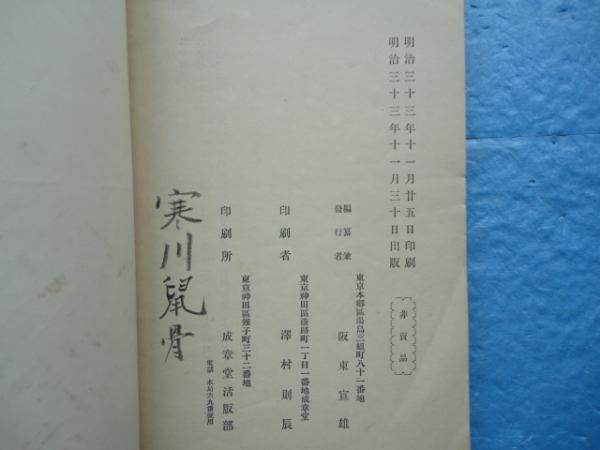 明治三十三年十一月廿五日印刷
明治三十三年十一月三十日出版
非賣品
編纂兼
發行者
東京本郷區湯島三組町八十一番地
阪東宣雄
印刷者
東京神田區淡路町一丁目一番地成章堂
澤村則辰
印刷所
東京神田區雉子町三十二番地
成章堂活版部
電話 本局六九番使用
寒川鼠骨